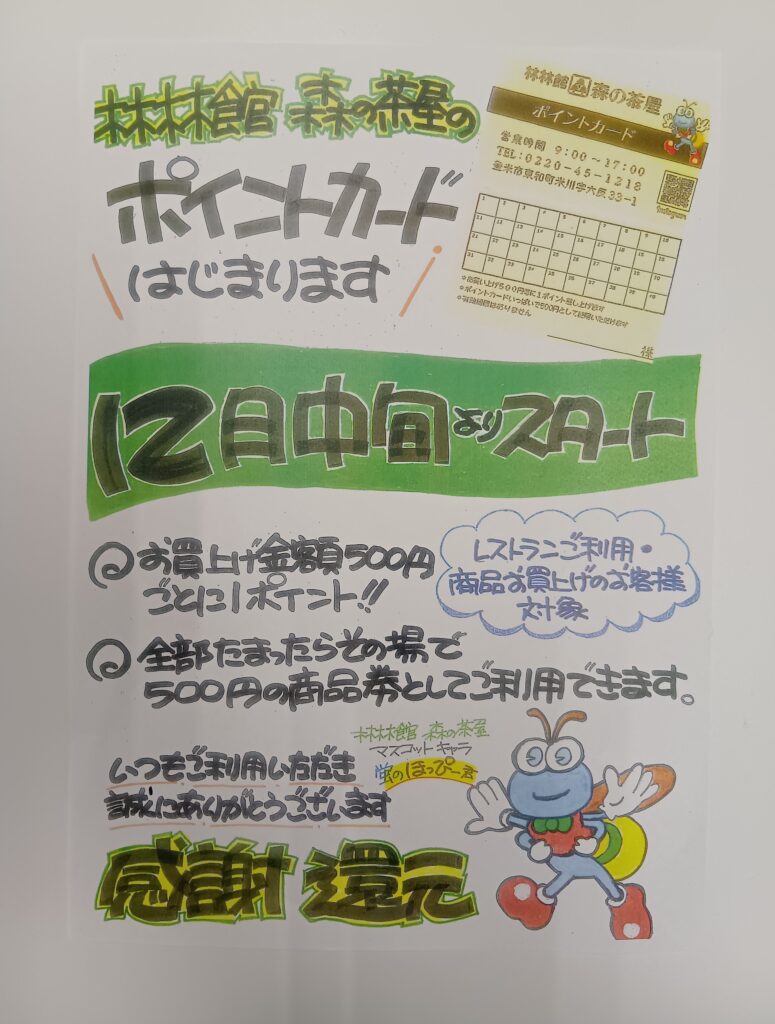 林林館 森の茶屋の
ポイントカード
はじまります
林林館 森の茶屋
ポイントカード
営業時間 9:00～17:00
TEL:0220-45-1218
登米市東和町米川字六反33-1
Instagram
1 2 3 4 5 6 7 8 9 10
11 12 13 14 15 16 17 18 19 20
21 22 23 24 25 26 27 28 29 30
31 32 33 34 35 36 37 38 39 40
※お買い上げ500円毎に1ポイント差し上げます
※ポイントカードいっぱいで500円としてご利用いただけます
※有効期限はありません
様
12月中旬よりスタート
お買上げ金額500円
ごとに1ポイント!!
レストランご利用・
商品お買上げのお客様
対象
全部たまったらその場で
500円の商品券としてご利用できます。
林林館 森の茶屋
マスコットキャラ
蛍のほっぴー君
いつもご利用いただき
誠にありがとうございます
感謝 還元